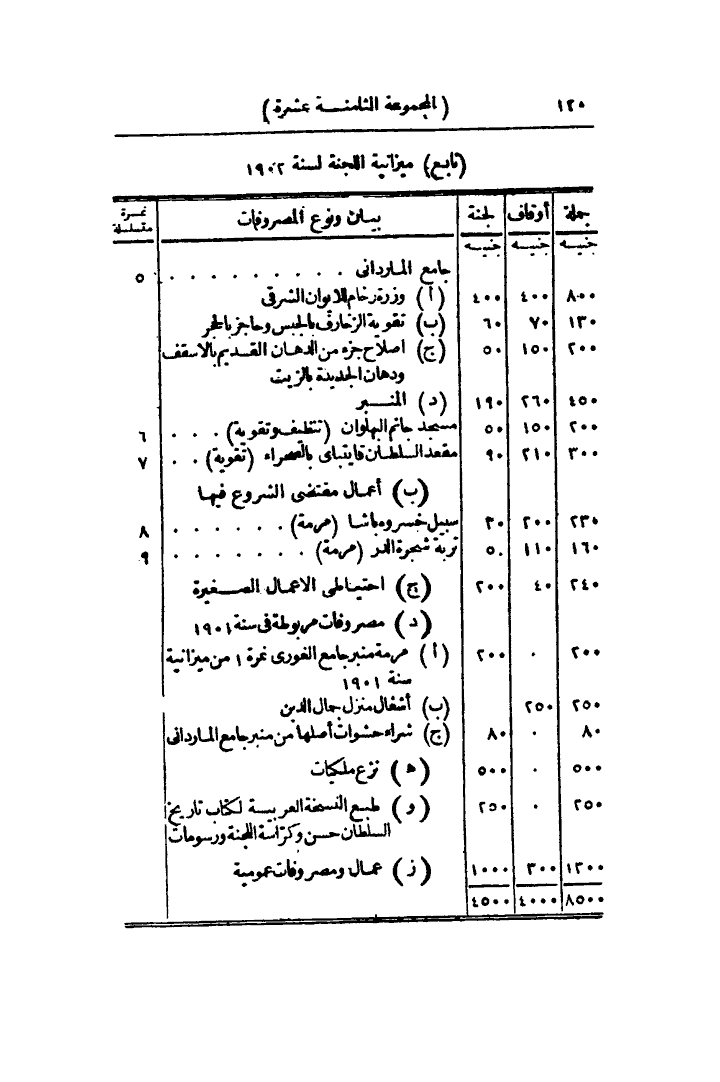 ١٢٠ (المجموعة الثامنة عشرة)
(تابع) ميزانية اللجنة لسنة ١٩٠٢
جملة أوقاف لجنة بيان ونوع المصروفات نمرة متسلسلة
جنيه جنيه جنيه
جامع الماردانى . . . . . . . . . . ٥
٨٠٠ ٤٠٠ ٤٠٠ (أ) وزرة رخام للايوان الشرقى
١٣٠ ٧٠ ٦٠ (ب) تقوية الزخارف بالجبس وحاجز بالحجر
٢٠٠ ١٥٠ ٥٠ (ج) اصلاح جزء من الدهان القديم بالاسقف
ودهان الجديدة بالزيت
٤٥٠ ٢٦٠ ١٩٠ (د) المنبر
٢٠٠ ١٥٠ ٥٠ مسجد جانم البهلوان (تنظيف وتقوية) . . . ٦
٣٠٠ ٢١٠ ٩٠ مقعد السلطان قايتباى بالصحراء (تقوية) . . ٧
(ب) أعمال مقتضى الشروع فيها
٢٣٠ ٢٠٠ ٣٠ سبيل خسرو باشا (مرمة) . . . . . . ٨
١٦٠ ١١٠ ٥٠ تربة شجرة الدر (مرمة) . . . . . . . ٩
٢٤٠ ٤٠ ٢٠٠ (ج) احتياطى الاعمال الصغيرة
(د) مصروفات مربوطة فى سنة ١٩٠١
٢٠٠ ٠ ٢٠٠ (أ) مرمة منبر جامع الغورى نمرة ١ من ميزانية
سنة ١٩٠١
٢٥٠ ٢٥٠ (ب) أشغال منزل جمال الدين
٨٠ ٠ ٨٠ (ج) شراء حشوات أصلها من منبر جامع الماردانى
٥٠٠ ٠ ٥٠٠ (ه) نزع ملكيات
٢٥٠ ٠ ٢٥٠ (و) طبع النسخة العربية لكتاب تاريخ
السلطان حسن وكراسة اللجنة ورسومات
١٣٠٠ ٣٠٠ ١٠٠٠ (ز) عمال ومصروفات عمومية
٨٥٠٠ ٤٠٠٠ ٤٥٠٠